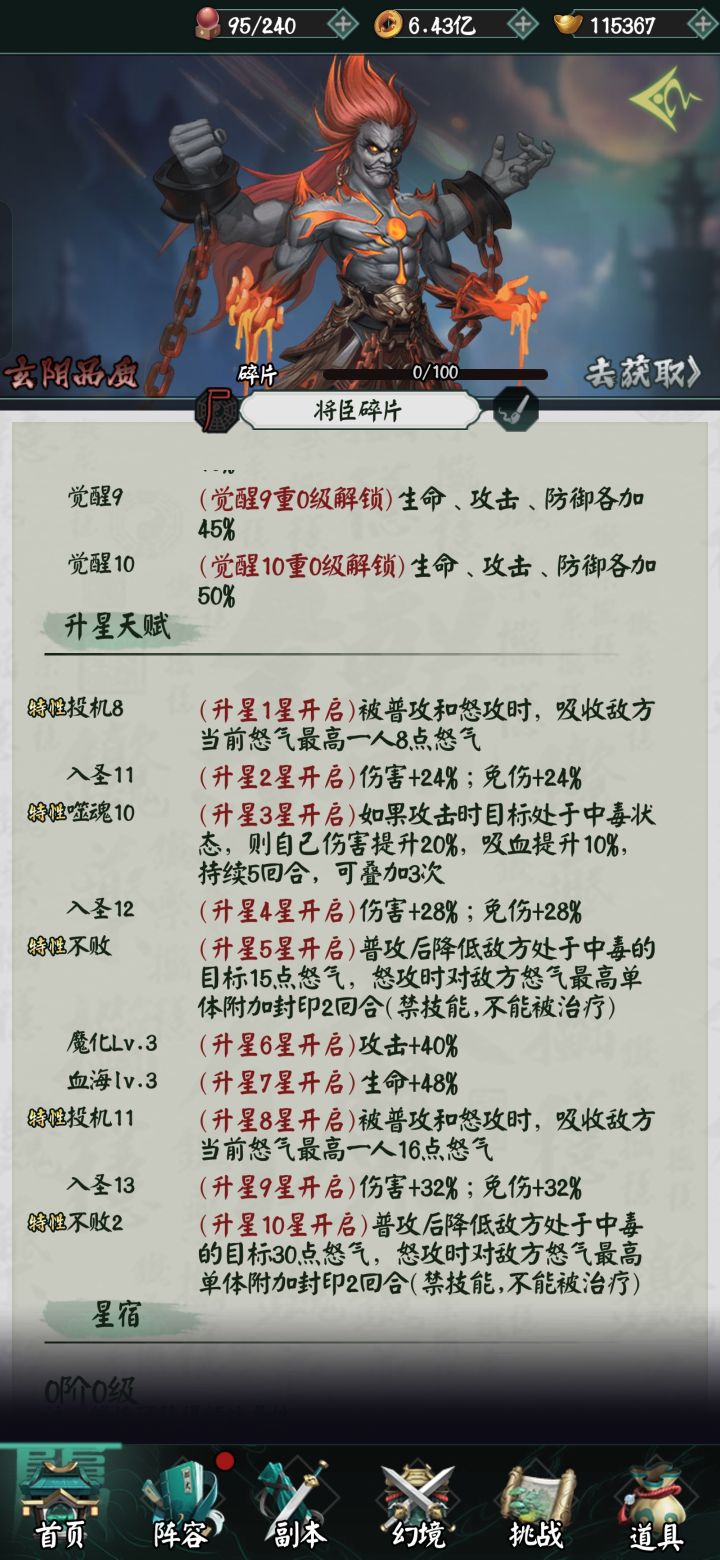 95/240 6.43亿 115367
玄阴品质 碎片 0/100 去获取》
将臣碎片
觉醒9 (觉醒9重0级解锁)生命、攻击、防御各加
45%
觉醒10 (觉醒10重0级解锁)生命、攻击、防御各加
50%
升星天赋
特性投机8 (升星1星开启)被普攻和怒攻时，吸收敌方
当前怒气最高一人8点怒气
入圣11 (升星2星开启)伤害+24%；免伤+24%
特性噬魂10 (升星3星开启)如果攻击时目标处于中毒状
态，则自己伤害提升20%，吸血提升10%，
持续5回合，可叠加3次
入圣12 (升星4星开启)伤害+28%；免伤+28%
特性不败 (升星5星开启)普攻后降低敌方处于中毒的
目标15点怒气，怒攻时对敌方怒气最高单
体附加封印2回合(禁技能,不能被治疗)
魔化Lv.3 (升星6星开启)攻击+40%
血海lv.3 (升星7星开启)生命+48%
特性投机11 (升星8星开启)被普攻和怒攻时，吸收敌方
当前怒气最高一人16点怒气
入圣13 (升星9星开启)伤害+32%；免伤+32%
特性不败2 (升星10星开启)普攻后降低敌方处于中毒
的目标30点怒气，怒攻时对敌方怒气最高
单体附加封印2回合(禁技能,不能被治疗)
星宿
0阶0级
首页 阵容 副本 幻境 挑战 道具